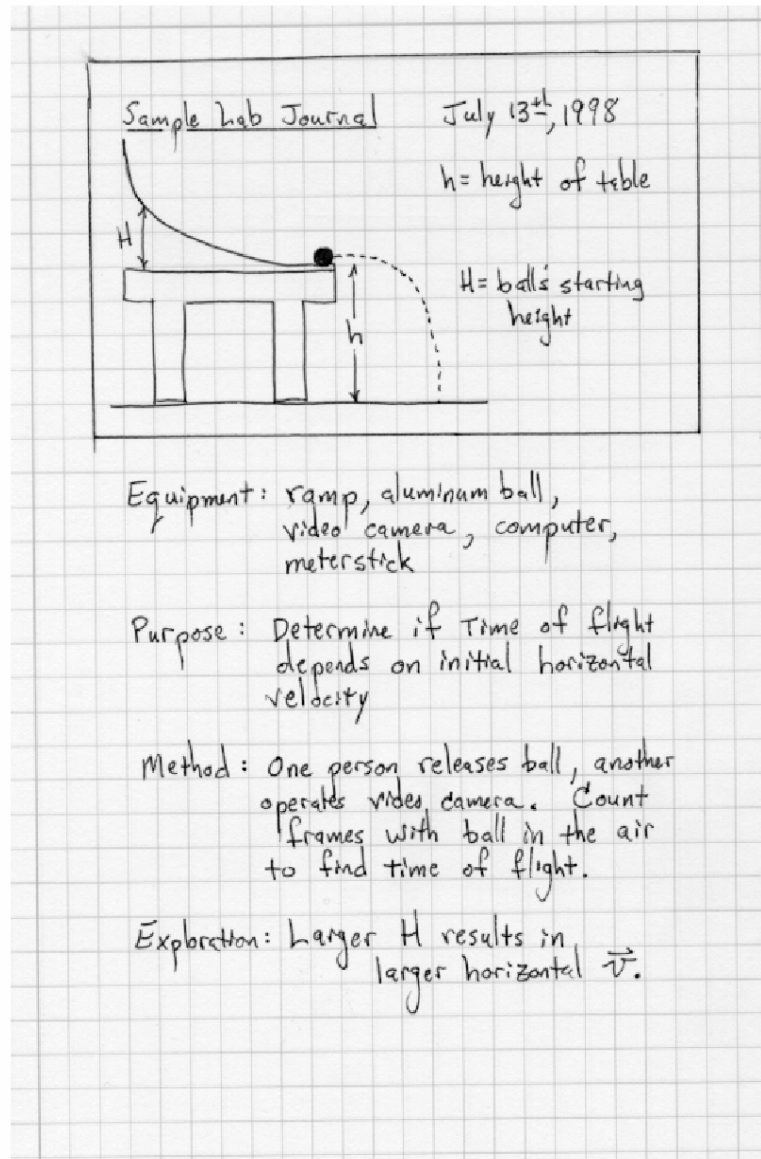 Sample Lab Journal July 13th, 1998
h = height of table
H
H = ball's starting
height
h
Equipment: ramp, aluminum ball,
video camera, computer,
meterstick
Purpose: Determine if Time of flight
depends on initial horizontal
velocity
Method: One person releases ball, another
operates video camera. Count
frames with ball in the air
to find time of flight.
Exploration: Larger H results in
larger horizontal v⃗.